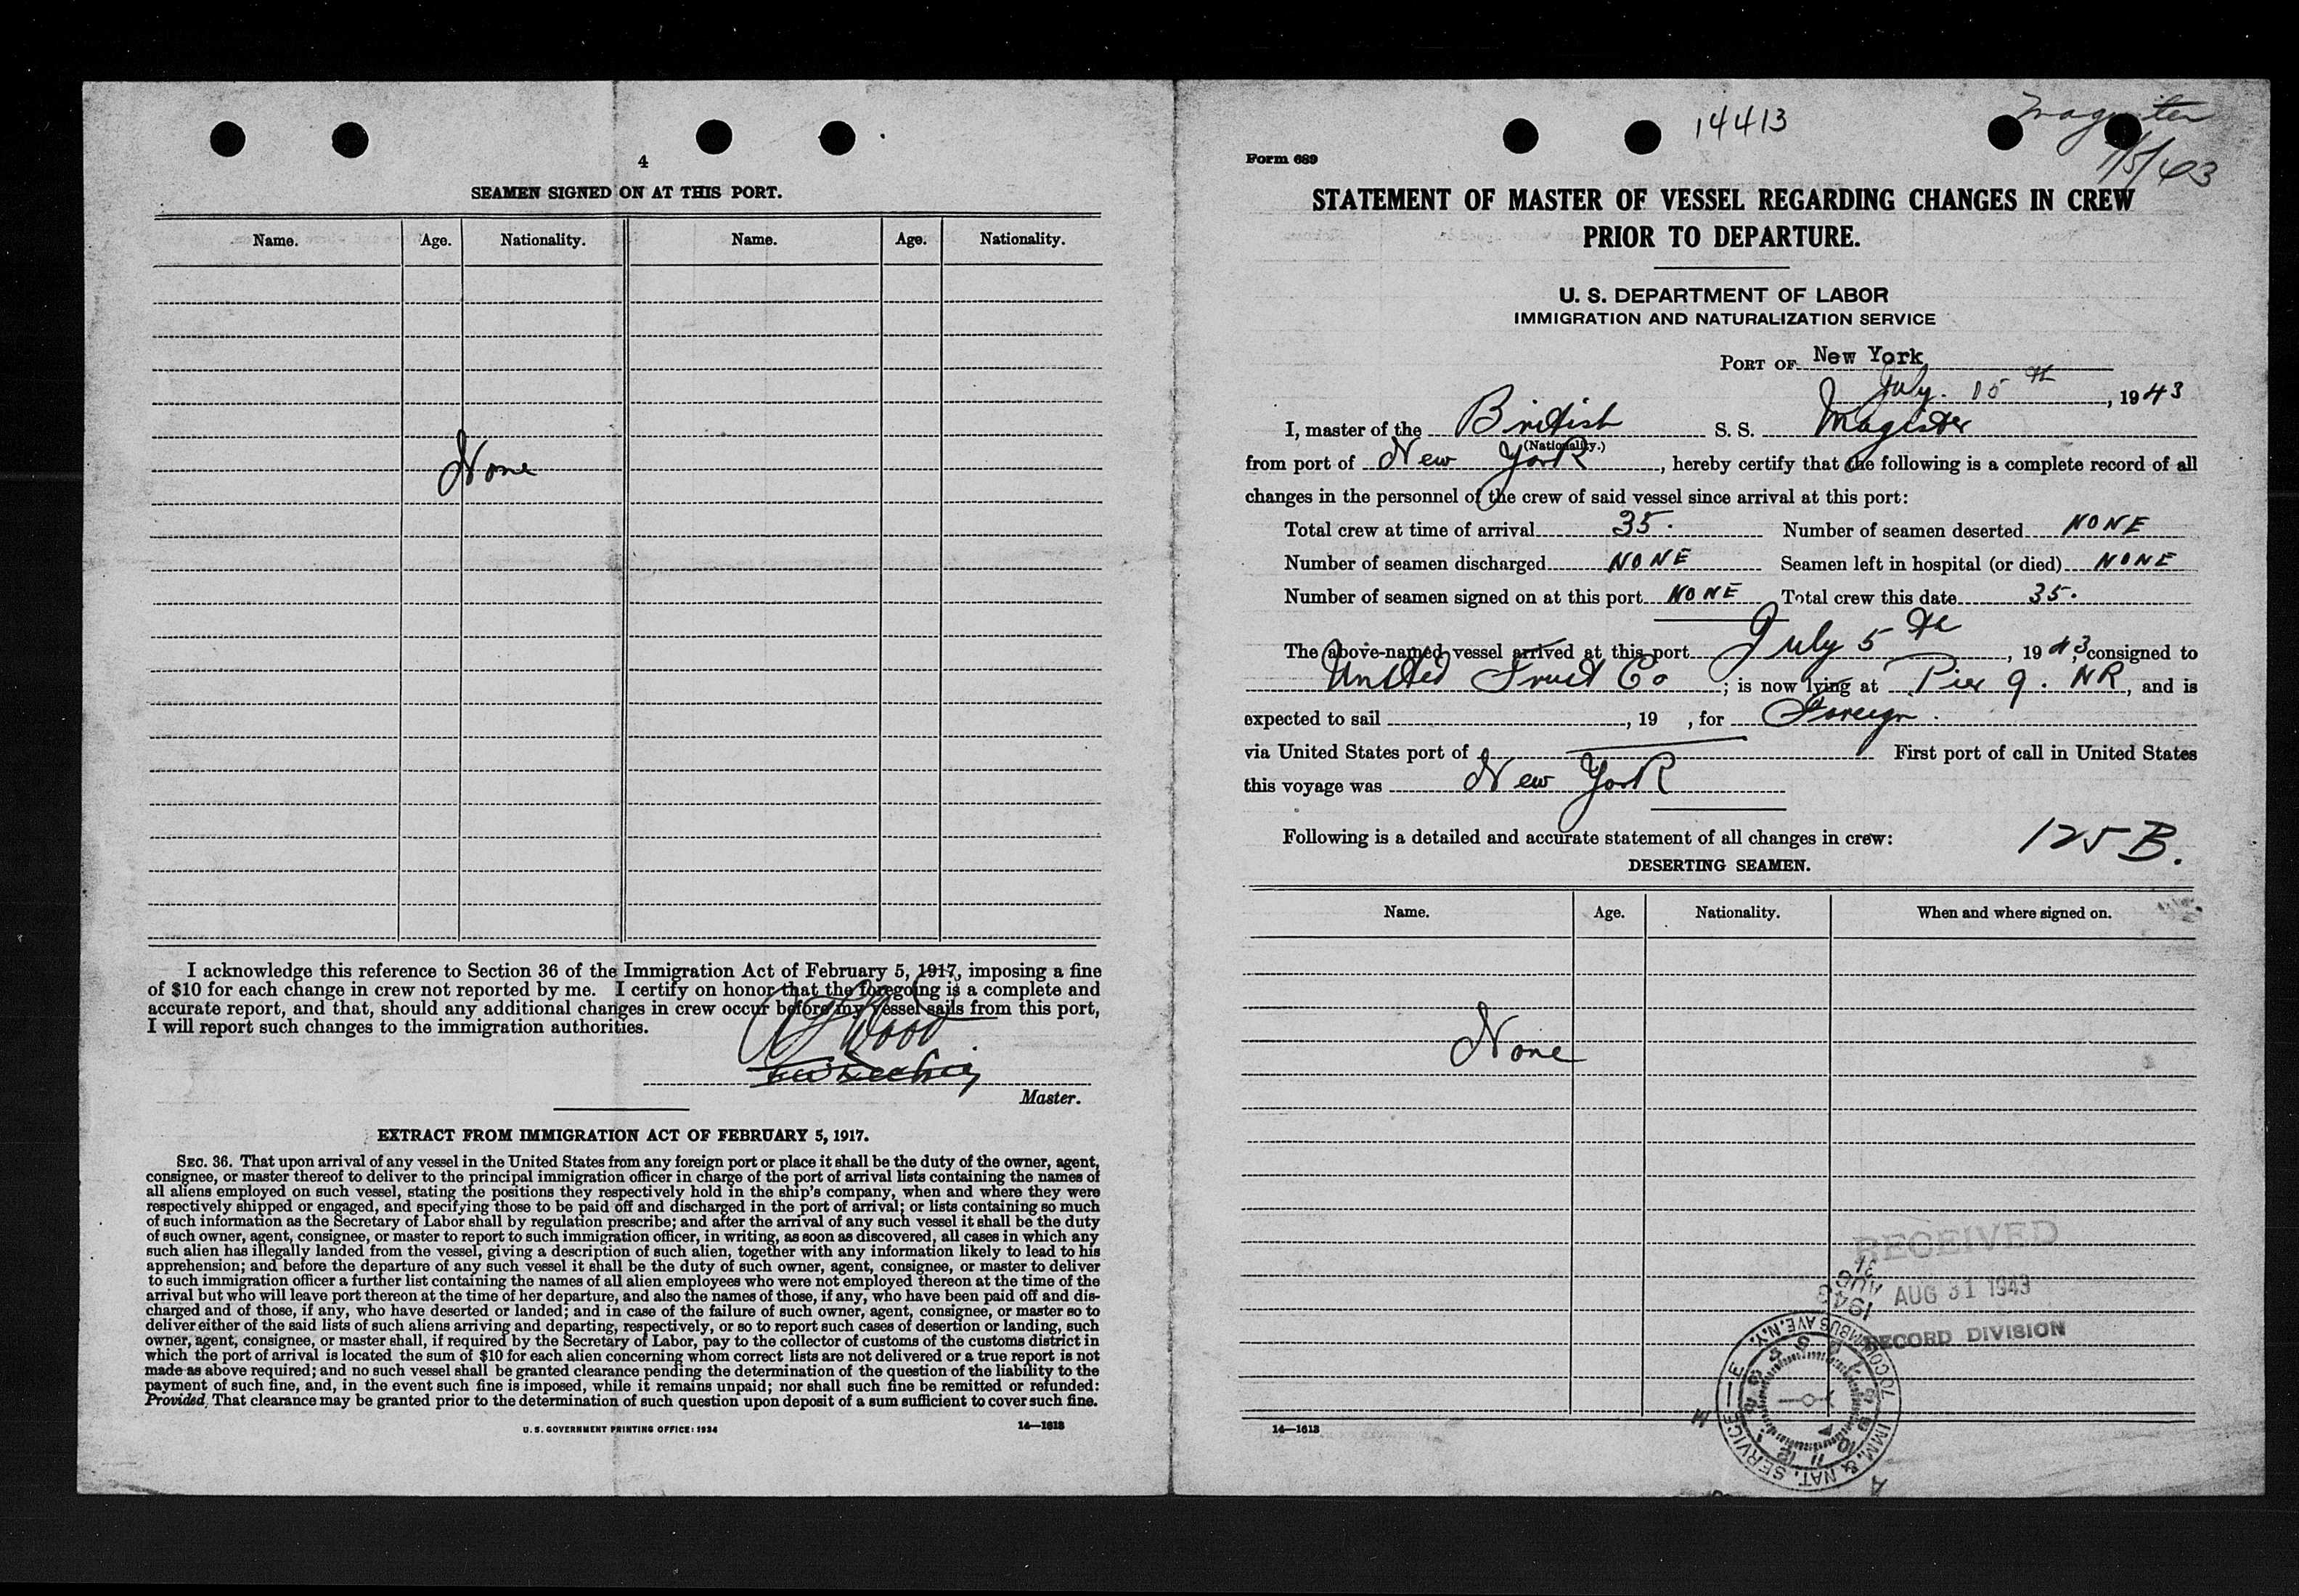 4
SEAMEN SIGNED ON AT THIS PORT.
Name. Age. Nationality. Name. Age. Nationality.
None
I acknowledge this reference to Section 36 of the Immigration Act of February 5, 1917, imposing a fine
of $10 for each change in crew not reported by me. I certify on honor that the foregoing is a complete and
accurate report, and that, should any additional changes in crew occur before my vessel sails from this port,
I will report such changes to the immigration authorities.
Wood
Master.
EXTRACT FROM IMMIGRATION ACT OF FEBRUARY 5, 1917.
SEC. 36. That upon arrival of any vessel in the United States from any foreign port or place it shall be the duty of the owner, agent,
consignee, or master thereof to deliver to the principal immigration officer in charge of the port of arrival lists containing the names of
all aliens employed on such vessel, stating the positions they respectively hold in the ship's company, when and where they were
respectively shipped or engaged, and specifying those to be paid off and discharged in the port of arrival; or lists containing so much
of such information as the Secretary of Labor shall by regulation prescribe; and after the arrival of any such vessel it shall be the duty
of such owner, agent, consignee, or master to report to such immigration officer, in writing, as soon as discovered, all cases in which any
such alien has illegally landed from the vessel, giving a description of such alien, together with any information likely to lead to his
apprehension; and before the departure of any such vessel it shall be the duty of such owner, agent, consignee, or master to deliver
to such immigration officer a further list containing the names of all alien employees who were not employed thereon at the time of the
arrival but who will leave port thereon at the time of her departure, and also the names of those, if any, who have been paid off and dis-
charged and of those, if any, who have deserted or landed; and in case of the failure of such owner, agent, consignee, or master so to
deliver either of the said lists of such aliens arriving and departing, respectively, or so to report such cases of desertion or landing, such
owner, agent, consignee, or master shall, if required by the Secretary of Labor, pay to the collector of customs of the customs district in
which the port of arrival is located the sum of $10 for each alien concerning whom correct lists are not delivered or a true report is not
made as above required; and no such vessel shall be granted clearance pending the determination of the question of the liability to the
payment of such fine, and, in the event such fine is imposed, while it remains unpaid; nor shall such fine be remitted or refunded:
Provided, That clearance may be granted prior to the determination of such question upon deposit of a sum sufficient to cover such fine.
U. S. GOVERNMENT PRINTING OFFICE: 1934 14—1613
14413
Form 689
STATEMENT OF MASTER OF VESSEL REGARDING CHANGES IN CREW
PRIOR TO DEPARTURE.
U. S. DEPARTMENT OF LABOR
IMMIGRATION AND NATURALIZATION SERVICE
PORT OF New York
July. 15th, 1943
I, master of the British S. S. Magister
(Nationality.)
from port of New York, hereby certify that the following is a complete record of all
changes in the personnel of the crew of said vessel since arrival at this port:
Total crew at time of arrival 35. Number of seamen deserted NONE
Number of seamen discharged NONE Seamen left in hospital (or died) NONE
Number of seamen signed on at this port NONE Total crew this date 35.
The above-named vessel arrived at this port July 5th, 1943, consigned to
United Fruit Co; is now lying at Pier 9. NR, and is
expected to sail , 19 , for Foreign.
via United States port of First port of call in United States
this voyage was New York
Following is a detailed and accurate statement of all changes in crew:
125 B.
DESERTING SEAMEN.
Name. Age. Nationality. When and where signed on.
None
RECEIVED
AUG 31 1943
RECORD DIVISION
31
AUG
1943
70 COLUMBUS AVE. N.Y.
IMM. & NAT. SERVICE
14—1613